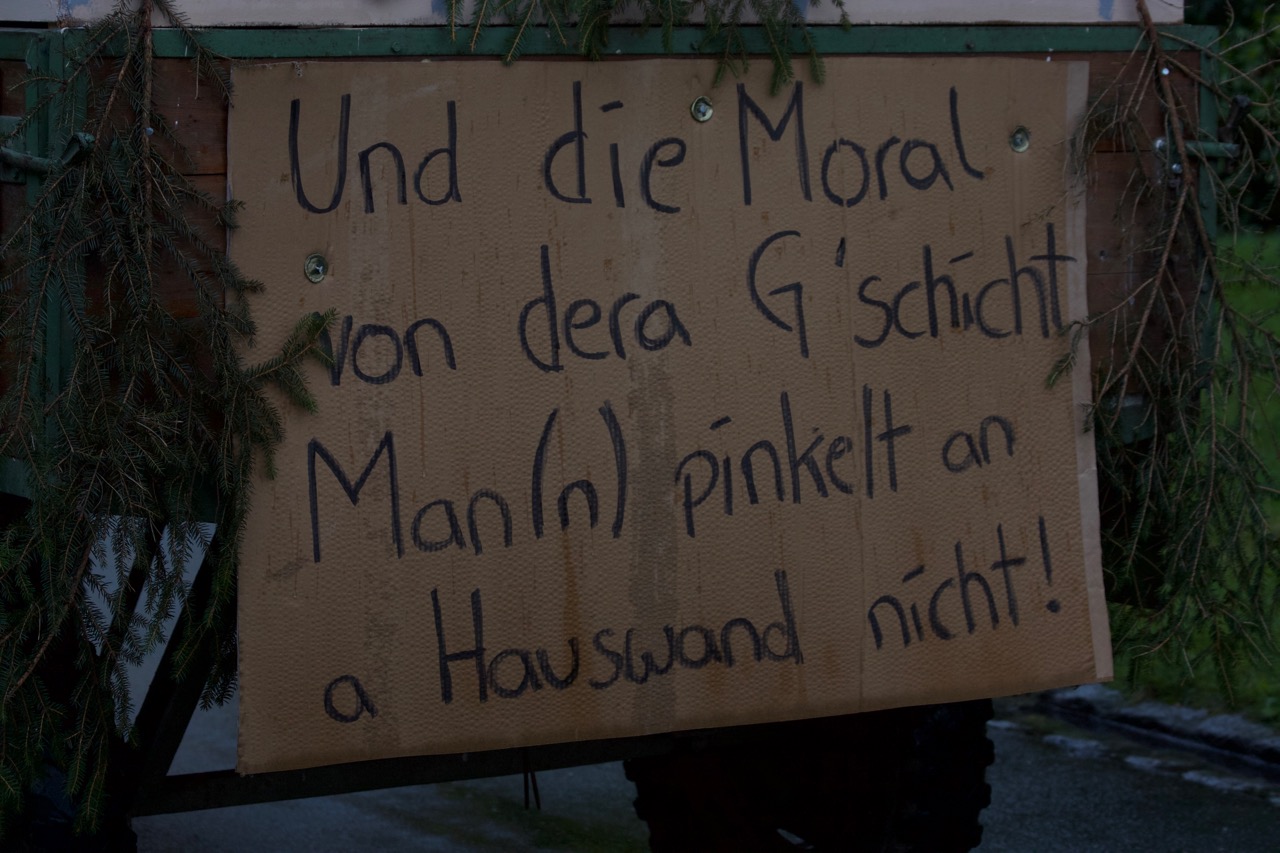 Und die Moral
von dera G'schicht
Man(n) pinkelt an
a Hauswand nicht!